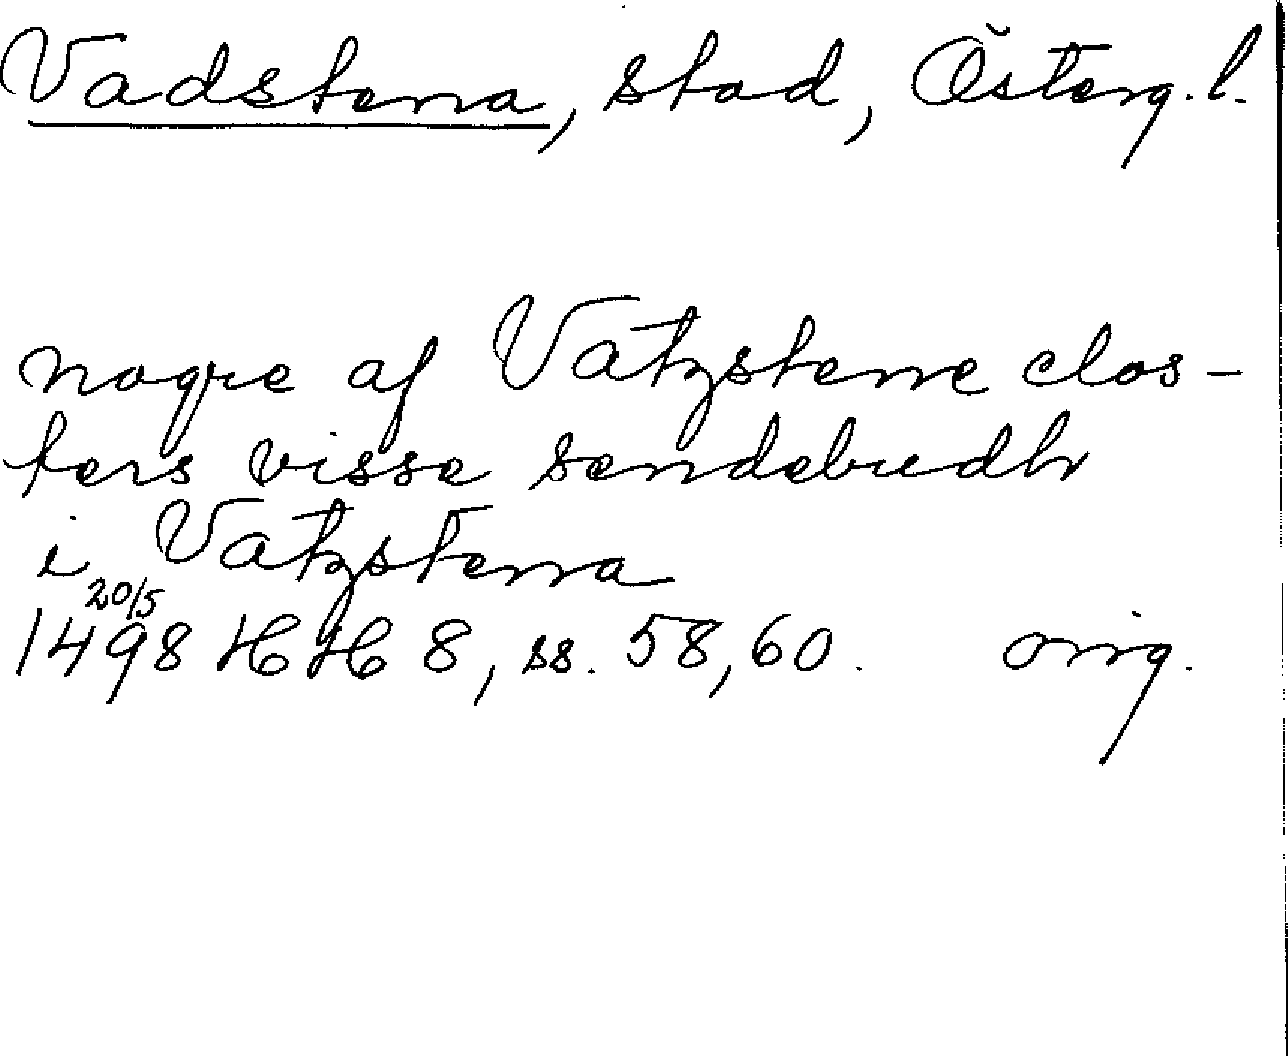 Vadstena, stad, Österg. l.
nogre af Vatzstenne clos-
ters visse sendebudh
i Vatzstena
20/5
1498 HH 8, ss. 58, 60. orig.